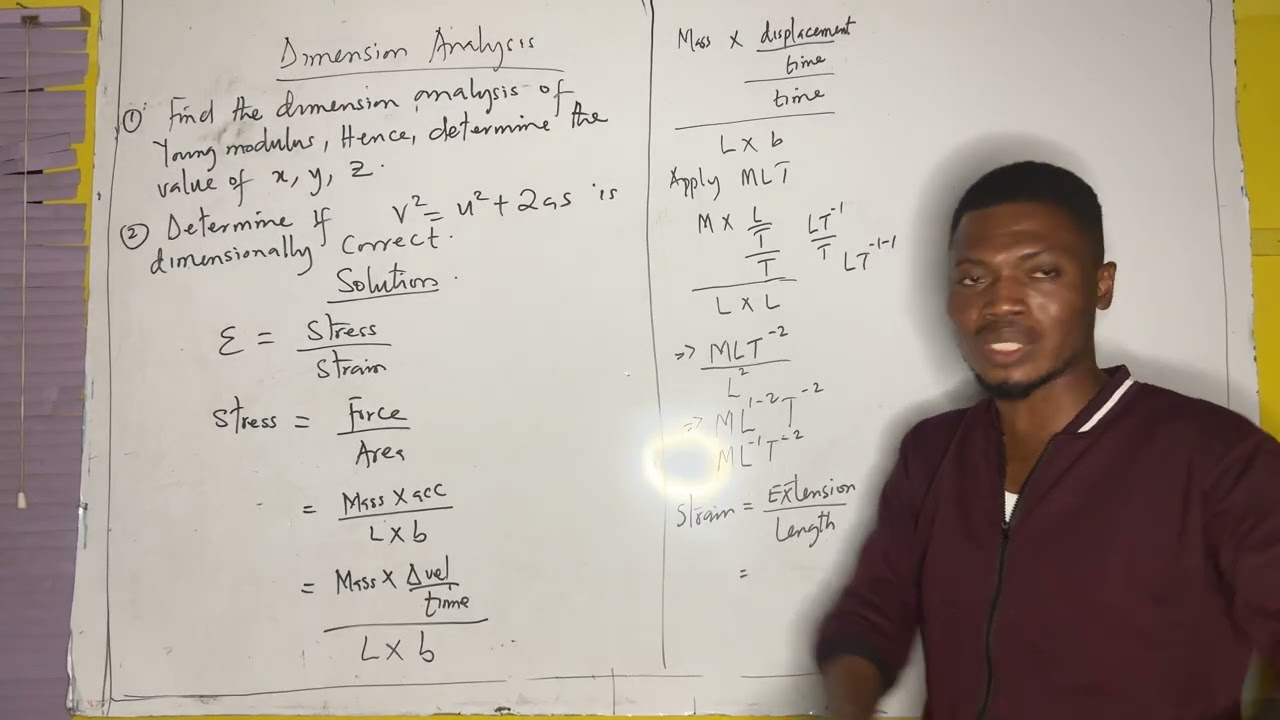 Dimension Analysis
① Find the dimension analysis of
Young modulus, Hence, determine the
value of x, y, z.
② Determine if v² = u² + 2as is
dimensionally Correct.
Solution.
Ɛ = Stress
Strain
Stress = Force
Area
= Mass X acc
L X b
= Mass X Δvel
time
L X b
Mass X displacement
time
time
L X b
Apply MLT
M X L LT⁻¹
T T LT⁻¹⁻¹
T
L X L
=> MLT⁻²
L²
=> ML¹⁻²T⁻²
ML⁻¹T⁻²
Strain = Extension
Length
=